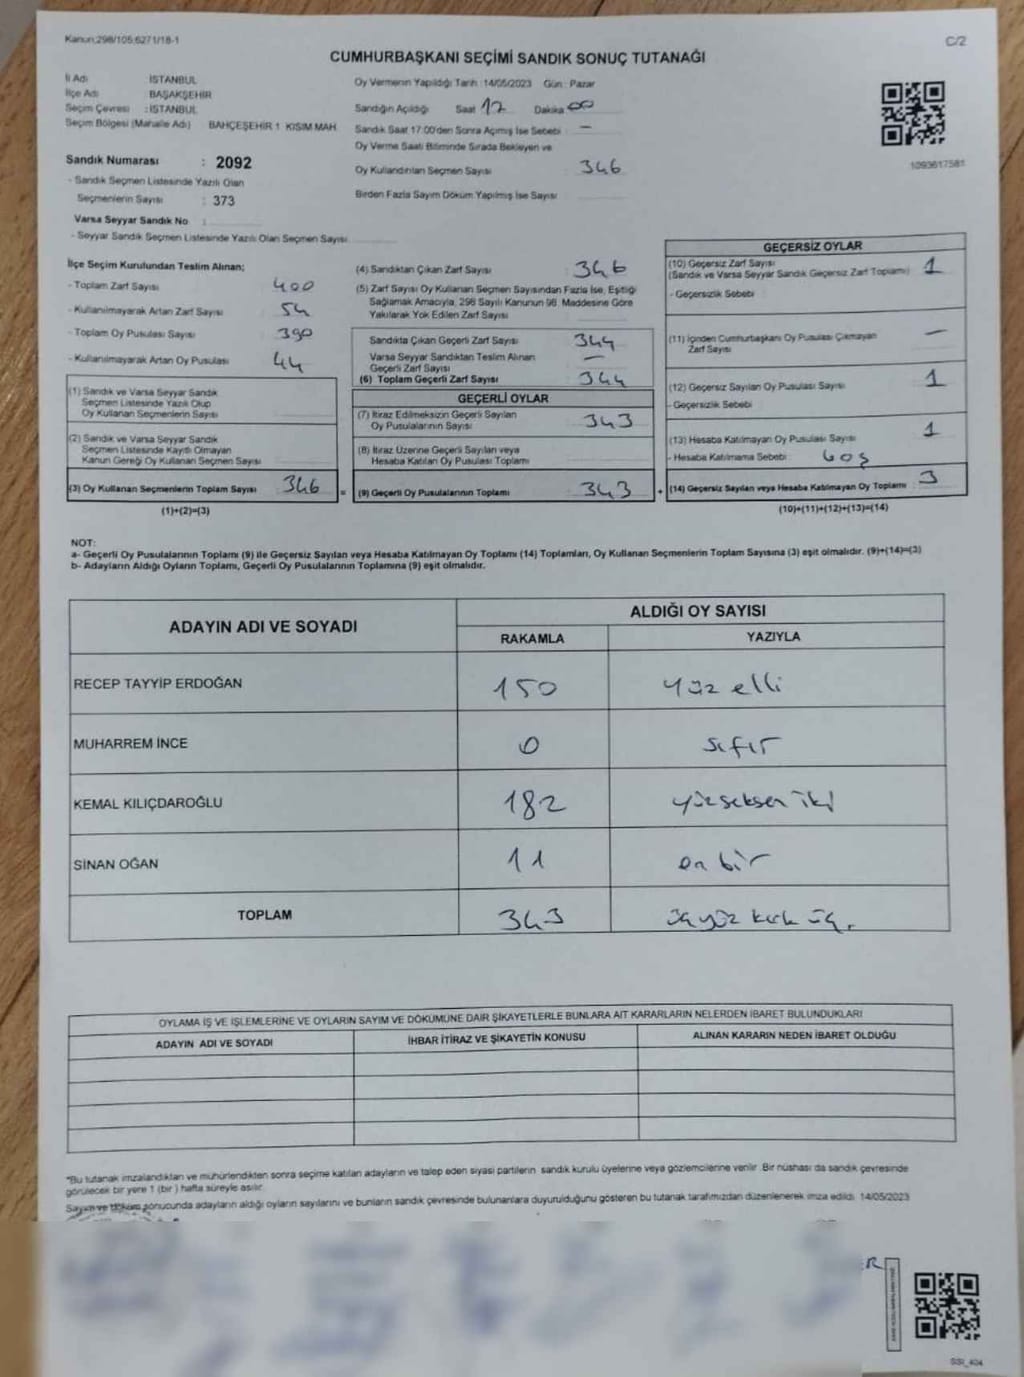 Kanun:298/105,6271/18-1
C/2
CUMHURBAŞKANI SEÇİMİ SANDIK SONUÇ TUTANAĞI
İl Adı : İSTANBUL
İlçe Adı : BAŞAKŞEHİR
Seçim Çevresi : İSTANBUL
Seçim Bölgesi (Mahalle Adı) BAHÇEŞEHİR 1 KISIM MAH
Sandık Numarası : 2092
- Sandık Seçmen Listesinde Yazılı Olan
Seçmenlerin Sayısı : 373
Varsa Seyyar Sandık No :
- Seyyar Sandık Seçmen Listesinde Yazılı Olan Seçmen Sayısı
Oy Vermenin Yapıldığı Tarih :14/05/2023 Gün : Pazar
Sandığın Açıldığı Saat 17 Dakika 00
Sandık Saat 17:00'den Sonra Açılmış İse Sebebi : —
Oy Verme Saati Bitiminde Sırada Bekleyen ve
Oy Kullandırılan Seçmen Sayısı : 346
Birden Fazla Sayım Döküm Yapılmış İse Sayısı
1093617581
İlçe Seçim Kurulundan Teslim Alınan;
- Toplam Zarf Sayısı : 400
- Kullanılmayarak Artan Zarf Sayısı : 54
- Toplam Oy Pusulası Sayısı : 390
- Kullanılmayarak Artan Oy Pusulası : 44
(1) Sandık ve Varsa Seyyar Sandık
Seçmen Listesinde Yazılı Olup
Oy Kullanan Seçmenlerin Sayısı
(2) Sandık ve Varsa Seyyar Sandık
Seçmen Listesinde Kayıtlı Olmayan
Kanun Gereği Oy Kullanan Seçmen Sayısı
(3) Oy Kullanan Seçmenlerin Toplam Sayısı : 346 =
(1)+(2)=(3)
(4) Sandıktan Çıkan Zarf Sayısı : 346
(5) Zarf Sayısı Oy Kullanan Seçmen Sayısından Fazla İse, Eşitliği
Sağlamak Amacıyla, 298 Sayılı Kanunun 98. Maddesine Göre
Yakılarak Yok Edilen Zarf Sayısı
Sandıkta Çıkan Geçerli Zarf Sayısı : 344
Varsa Seyyar Sandıktan Teslim Alınan
Geçerli Zarf Sayısı : —
(6) Toplam Geçerli Zarf Sayısı : 344
GEÇERLİ OYLAR
(7) İtiraz Edilmeksizin Geçerli Sayılan
Oy Pusulalarının Sayısı : 343
(8) İtiraz Üzerine Geçerli Sayılan veya
Hesaba Katılan Oy Pusulası Toplamı
(9) Geçerli Oy Pusulalarının Toplamı : 343 +
GEÇERSİZ OYLAR
(10) Geçersiz Zarf Sayısı
(Sandık ve Varsa Seyyar Sandık Geçersiz Zarf Toplamı) : 1
- Geçersizlik Sebebi :
(11) İçinden Cumhurbaşkanı Oy Pusulası Çıkmayan
Zarf Sayısı —
(12) Geçersiz Sayılan Oy Pusulası Sayısı : 1
- Geçersizlik Sebebi :
(13) Hesaba Katılmayan Oy Pusulası Sayısı : 1
- Hesaba Katılmama Sebebi : boş
(14) Geçersiz Sayılan veya Hesaba Katılmayan Oy Toplamı : 3
(10)+(11)+(12)+(13)=(14)
NOT:
a- Geçerli Oy Pusulalarının Toplamı (9) ile Geçersiz Sayılan veya Hesaba Katılmayan Oy Toplamı (14) Toplamları, Oy Kullanan Seçmenlerin Toplam Sayısına (3) eşit olmalıdır. (9)+(14)=(3)
b- Adayların Aldığı Oyların Toplamı, Geçerli Oy Pusulalarının Toplamına (9) eşit olmalıdır.
ADAYIN ADI VE SOYADI
ALDIĞI OY SAYISI
RAKAMLA YAZIYLA
RECEP TAYYİP ERDOĞAN 150 yüz elli
MUHARREM İNCE 0 sıfır
KEMAL KILIÇDAROĞLU 182 yüzseksen iki
SİNAN OĞAN 11 on bir
TOPLAM 343 üçyüz kırk üç.
OYLAMA İŞ VE İŞLEMLERİNE VE OYLARIN SAYIM VE DÖKÜMÜNE DAİR ŞİKAYETLERLE BUNLARA AİT KARARLARIN NELERDEN İBARET BULUNDUKLARI
ADAYIN ADI VE SOYADI İHBAR İTİRAZ VE ŞİKAYETİN KONUSU ALINAN KARARIN NEDEN İBARET OLDUĞU
"Bu tutanak imzalandıktan ve mühürlendikten sonra seçime katılan adayların ve talep eden siyasi partilerin sandık kurulu üyelerine veya gözlemcilerine verilir. Bir nüshası da sandık çevresinde
görülecek bir yere 1 (bir) hafta süreyle asılır.
Sayım ve döküm sonucunda adayların aldığı oyların sayılarını ve bunların sandık çevresinde bulunanlara duyurulduğunu gösteren bu tutanak tarafımızdan düzenlenerek imza edildi. 14/05/2023
ER
SSI_404